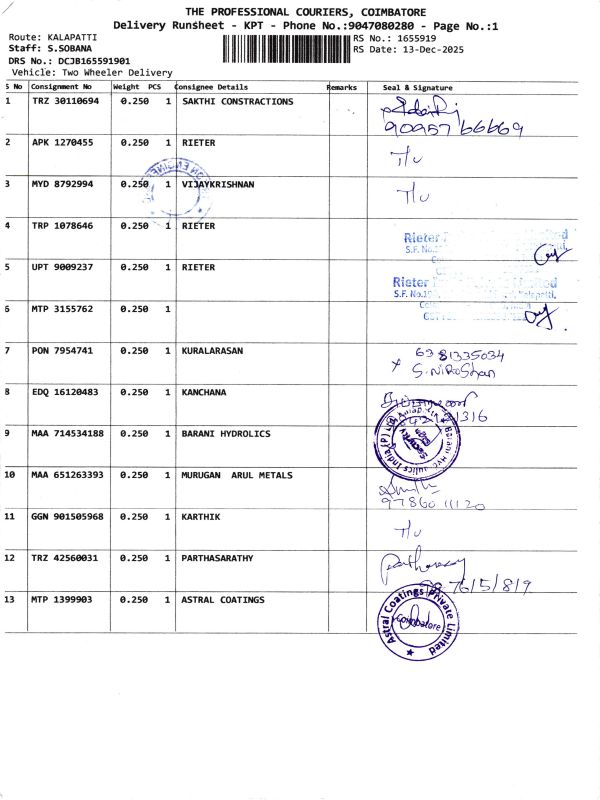 THE PROFESSIONAL COURIERS, COIMBATORE
Delivery Runsheet - KPT - Phone No.:9047080280 - Page No.:1
Route: KALAPATTI RS No.: 1655919
Staff: S.SOBANA RS Date: 13-Dec-2025
DRS No.: DCJB165591901
Vehicle: Two Wheeler Delivery
S No Consignment No Weight PCS Consignee Details Remarks Seal & Signature
1 TRZ 30110694 0.250 1 SAKTHI CONSTRACTIONS
90957 66669
2 APK 1270455 0.250 1 RIETER T/u
3 MYD 8792994 0.250 1 VIJAYKRISHNAN T/u
4 TRP 1078646 0.250 1 RIETER Rieter
S.F. No.
5 UPT 9009237 0.250 1 RIETER Rieter
S.F. No.
6 MTP 3155762 0.250 1
7 PON 7954741 0.250 1 KURALARASAN 6381335034
S.NiRoShan
8 EDQ 16120483 0.250 1 KANCHANA
1316
9 MAA 714534188 0.250 1 BARANI HYDROLICS
10 MAA 651263393 0.250 1 MURUGAN ARUL METALS
97860 11120
11 GGN 901505968 0.250 1 KARTHIK T/u
12 TRZ 42560031 0.250 1 PARTHASARATHY
13 MTP 1399903 0.250 1 ASTRAL COATINGS Astral Coatings Private Limited
Coimbatore